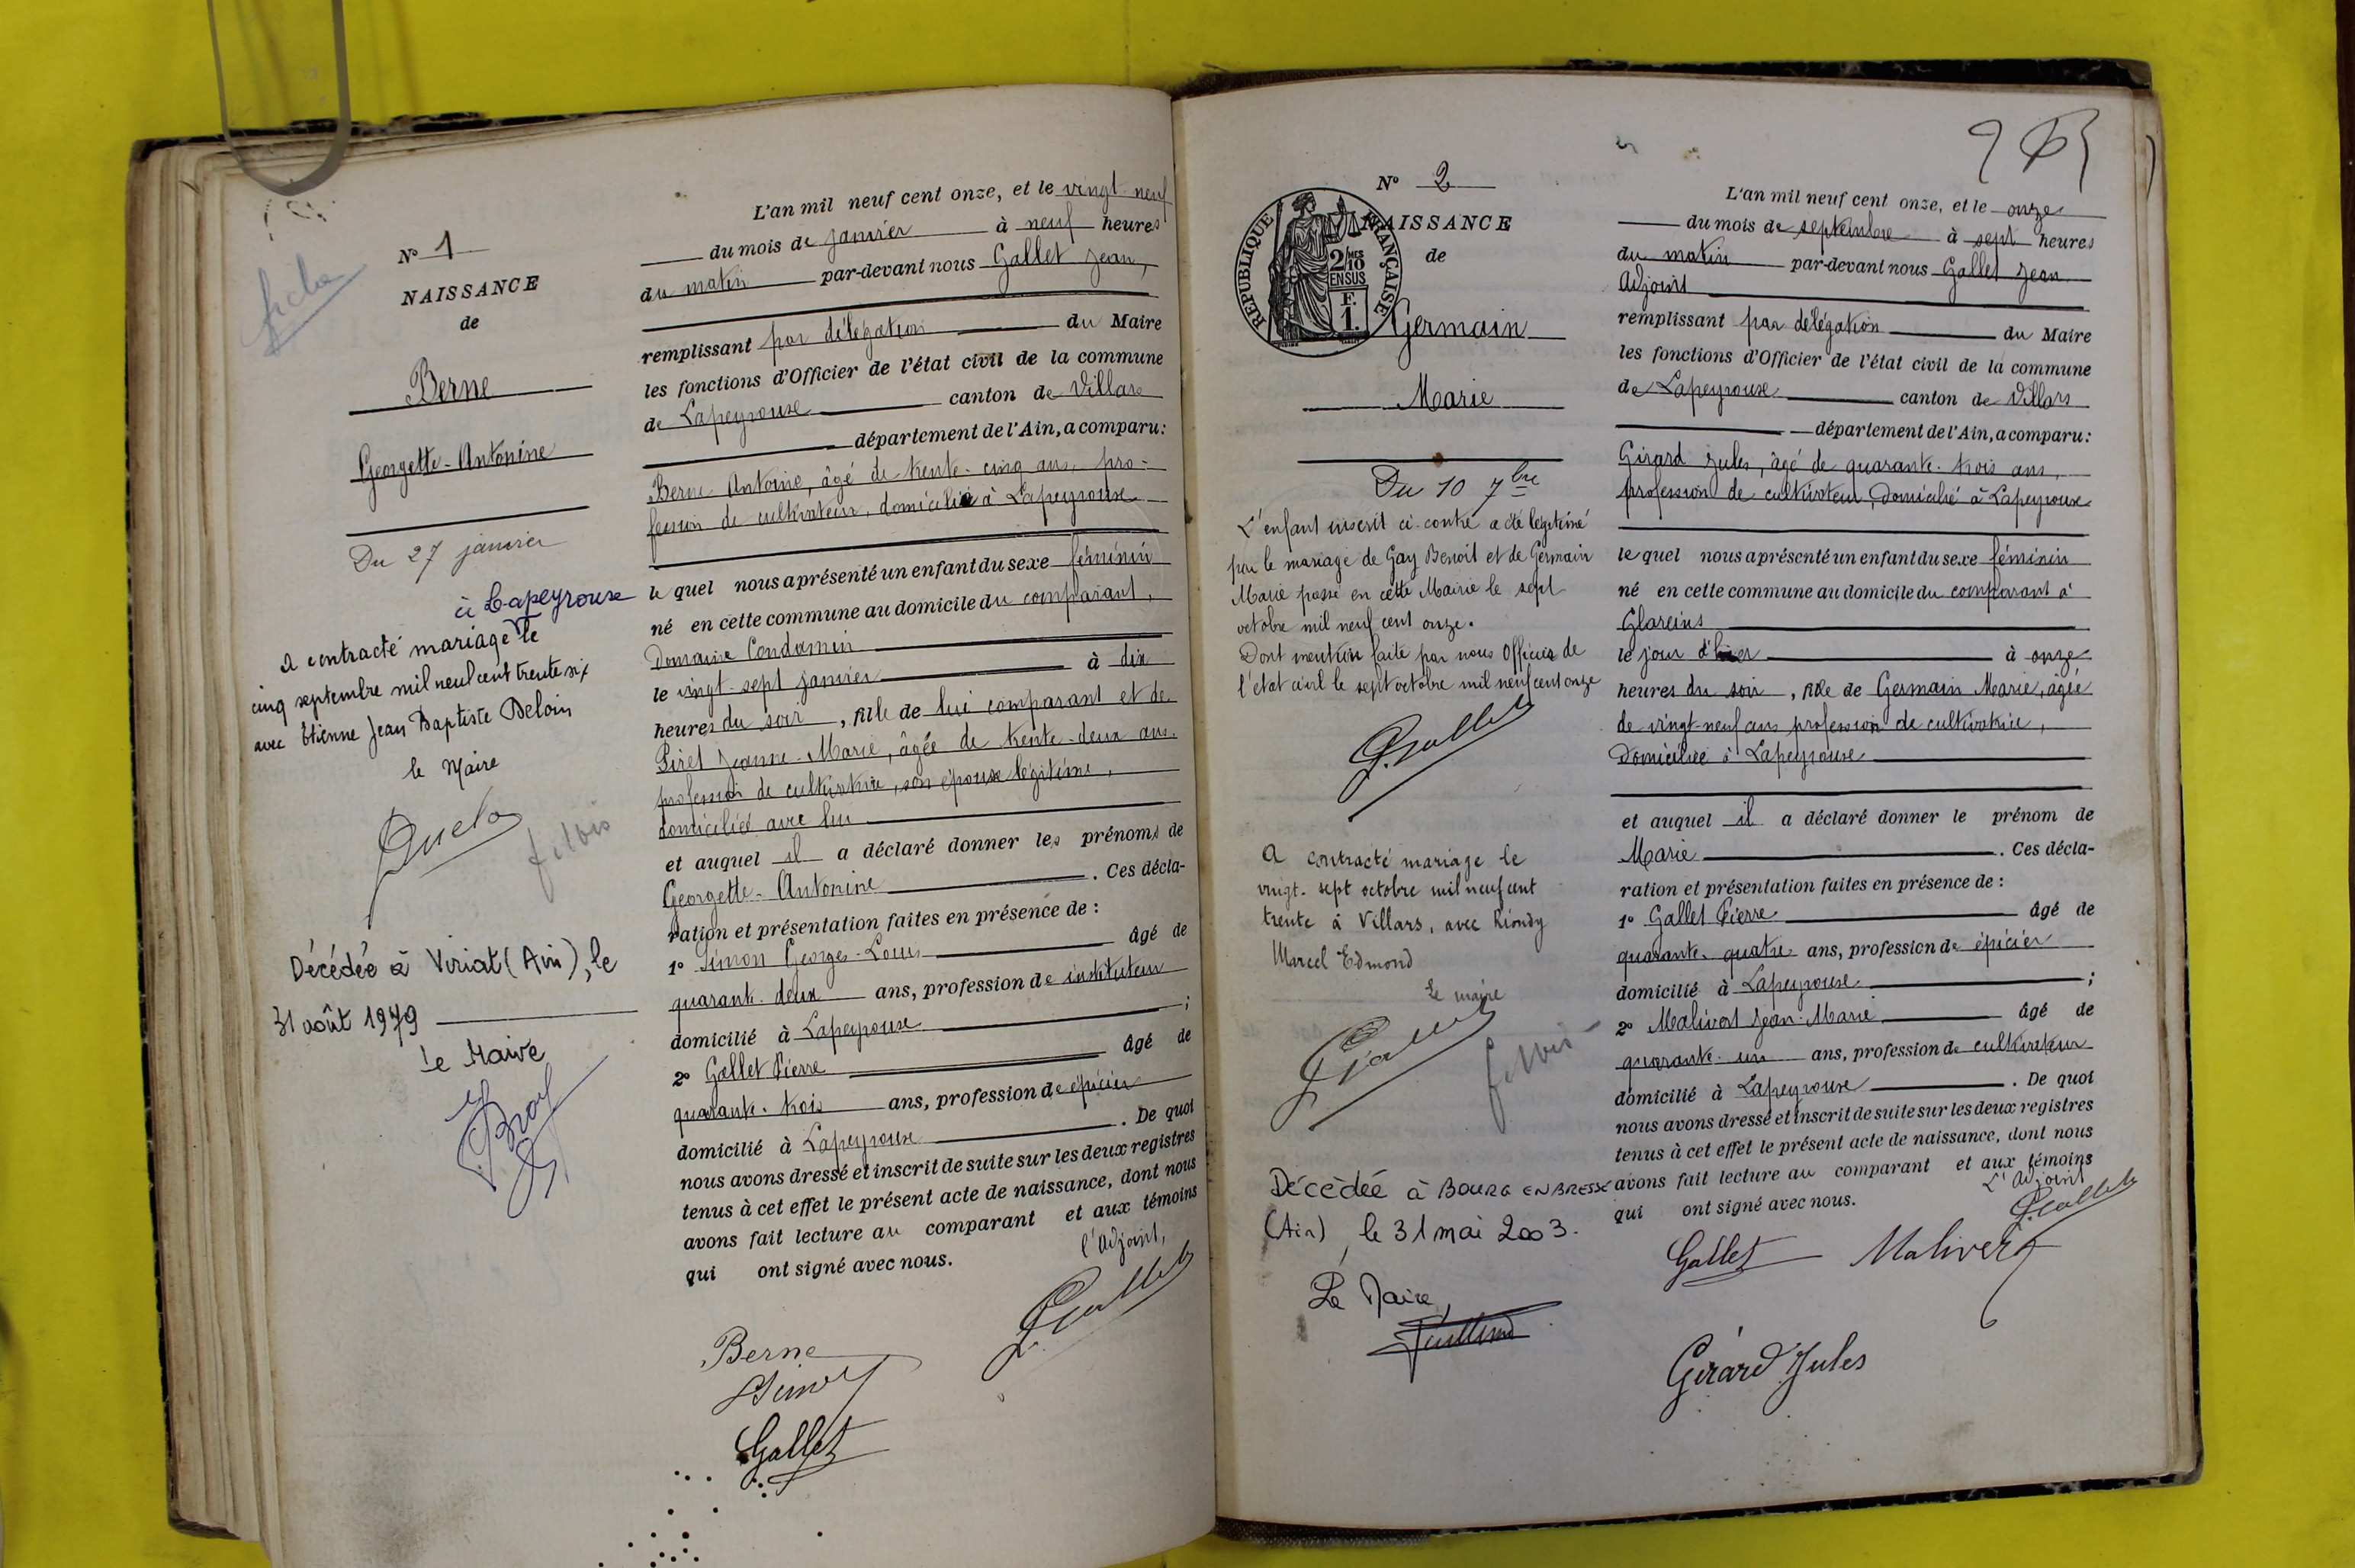 N° 1
NAISSANCE
de
Berne
Georgette-Antonine
Du 27 janvier
à Lapeyrouse
A contracté mariage le
cinq septembre mil neuf cent trente six
avec Etienne Jean Baptiste Beloin
le Maire
Décédée à Viriat (Ain), le
31 août 1979
Le Maire
L'an mil neuf cent onze, et le vingt neuf
du mois de janvier à neuf heures
du matin par-devant nous Gallet Jean,
remplissant par délégation du Maire
les fonctions d'Officier de l'état civil de la commune
de Lapeyrouse canton de Villars
département de l'Ain, a comparu:
Berne Antoine, âgé de trente-cinq ans, pro-
fession de cultivateur, domicilié à Lapeyrouse
le quel nous a présenté un enfant du sexe féminin
né en cette commune au domicile du comparant,
Domaine Condamin
le vingt-sept janvier à dix
heures du soir, fille de lui comparant et de
Jeanne-Marie, âgée de trente-deux ans,
profession de cultivatrice, son épouse légitime,
domiciliée avec lui
et auquel il a déclaré donner les prénoms de
Georgette-Antonine. Ces décla-
ration et présentation faites en présence de:
1° Simon Georges-Louis âgé de
quarante-deux ans, profession de instituteur
domicilié à Lapeyrouse;
2° Gallet Pierre âgé de
quarante-trois ans, profession de épicier
domicilié à Lapeyrouse. De quoi
nous avons dressé et inscrit de suite sur les deux registres
tenus à cet effet le présent acte de naissance, dont nous
avons fait lecture au comparant et aux témoins
qui ont signé avec nous. l'Adjoint,
J. Gallet
Berne
Simon
Gallet
N° 2
NAISSANCE
de
RÉPUBLIQUE FRANÇAISE
2/10 MES
EN SUS
F.
1.
Germain
Marie
Du 10 7bre
L'enfant inscrit ci-contre a été légitimé
par le mariage de Gay Benoit et de Germain
Marie passé en cette Mairie le sept
octobre mil neuf cent onze.
Dont mention faite par nous Officier de
l'état civil le sept octobre mil neuf cent onze
J. Gallet
A contracté mariage le
vingt-sept octobre mil neuf cent
trente à Villars, avec Riondy
Marcel Edmond
Le maire
Décédée à BOURG EN BRESSE
(Ain), le 31 mai 2003.
Le Maire,
L'an mil neuf cent onze, et le onze
du mois de septembre à sept heures
du matin par-devant nous Gallet Jean
Adjoint
remplissant par délégation du Maire
les fonctions d'Officier de l'état civil de la commune
de Lapeyrouse canton de Villars
département de l'Ain, a comparu:
Girard Jules, âgé de quarante-trois ans,
profession de cultivateur, domicilié à Lapeyrouse
le quel nous a présenté un enfant du sexe féminin
né en cette commune au domicile du comparant à
Glareins
le jour d'hier à onze
heures du soir, fille de Germain Marie, âgée
de vingt-neuf ans profession de cultivatrice,
domiciliée à Lapeyrouse
et auquel il a déclaré donner le prénom de
Marie. Ces décla-
ration et présentation faites en présence de:
1° Gallet Pierre âgé de
quarante-quatre ans, profession de épicier
domicilié à Lapeyrouse;
2° Malivert Jean-Marie âgé de
quarante-un ans, profession de cultivateur
domicilié à Lapeyrouse. De quoi
nous avons dressé et inscrit de suite sur les deux registres
tenus à cet effet le présent acte de naissance, dont nous
avons fait lecture au comparant et aux témoins
qui ont signé avec nous. L'Adjoint
J. Gallet
Gallet Malivert
Girard Jules